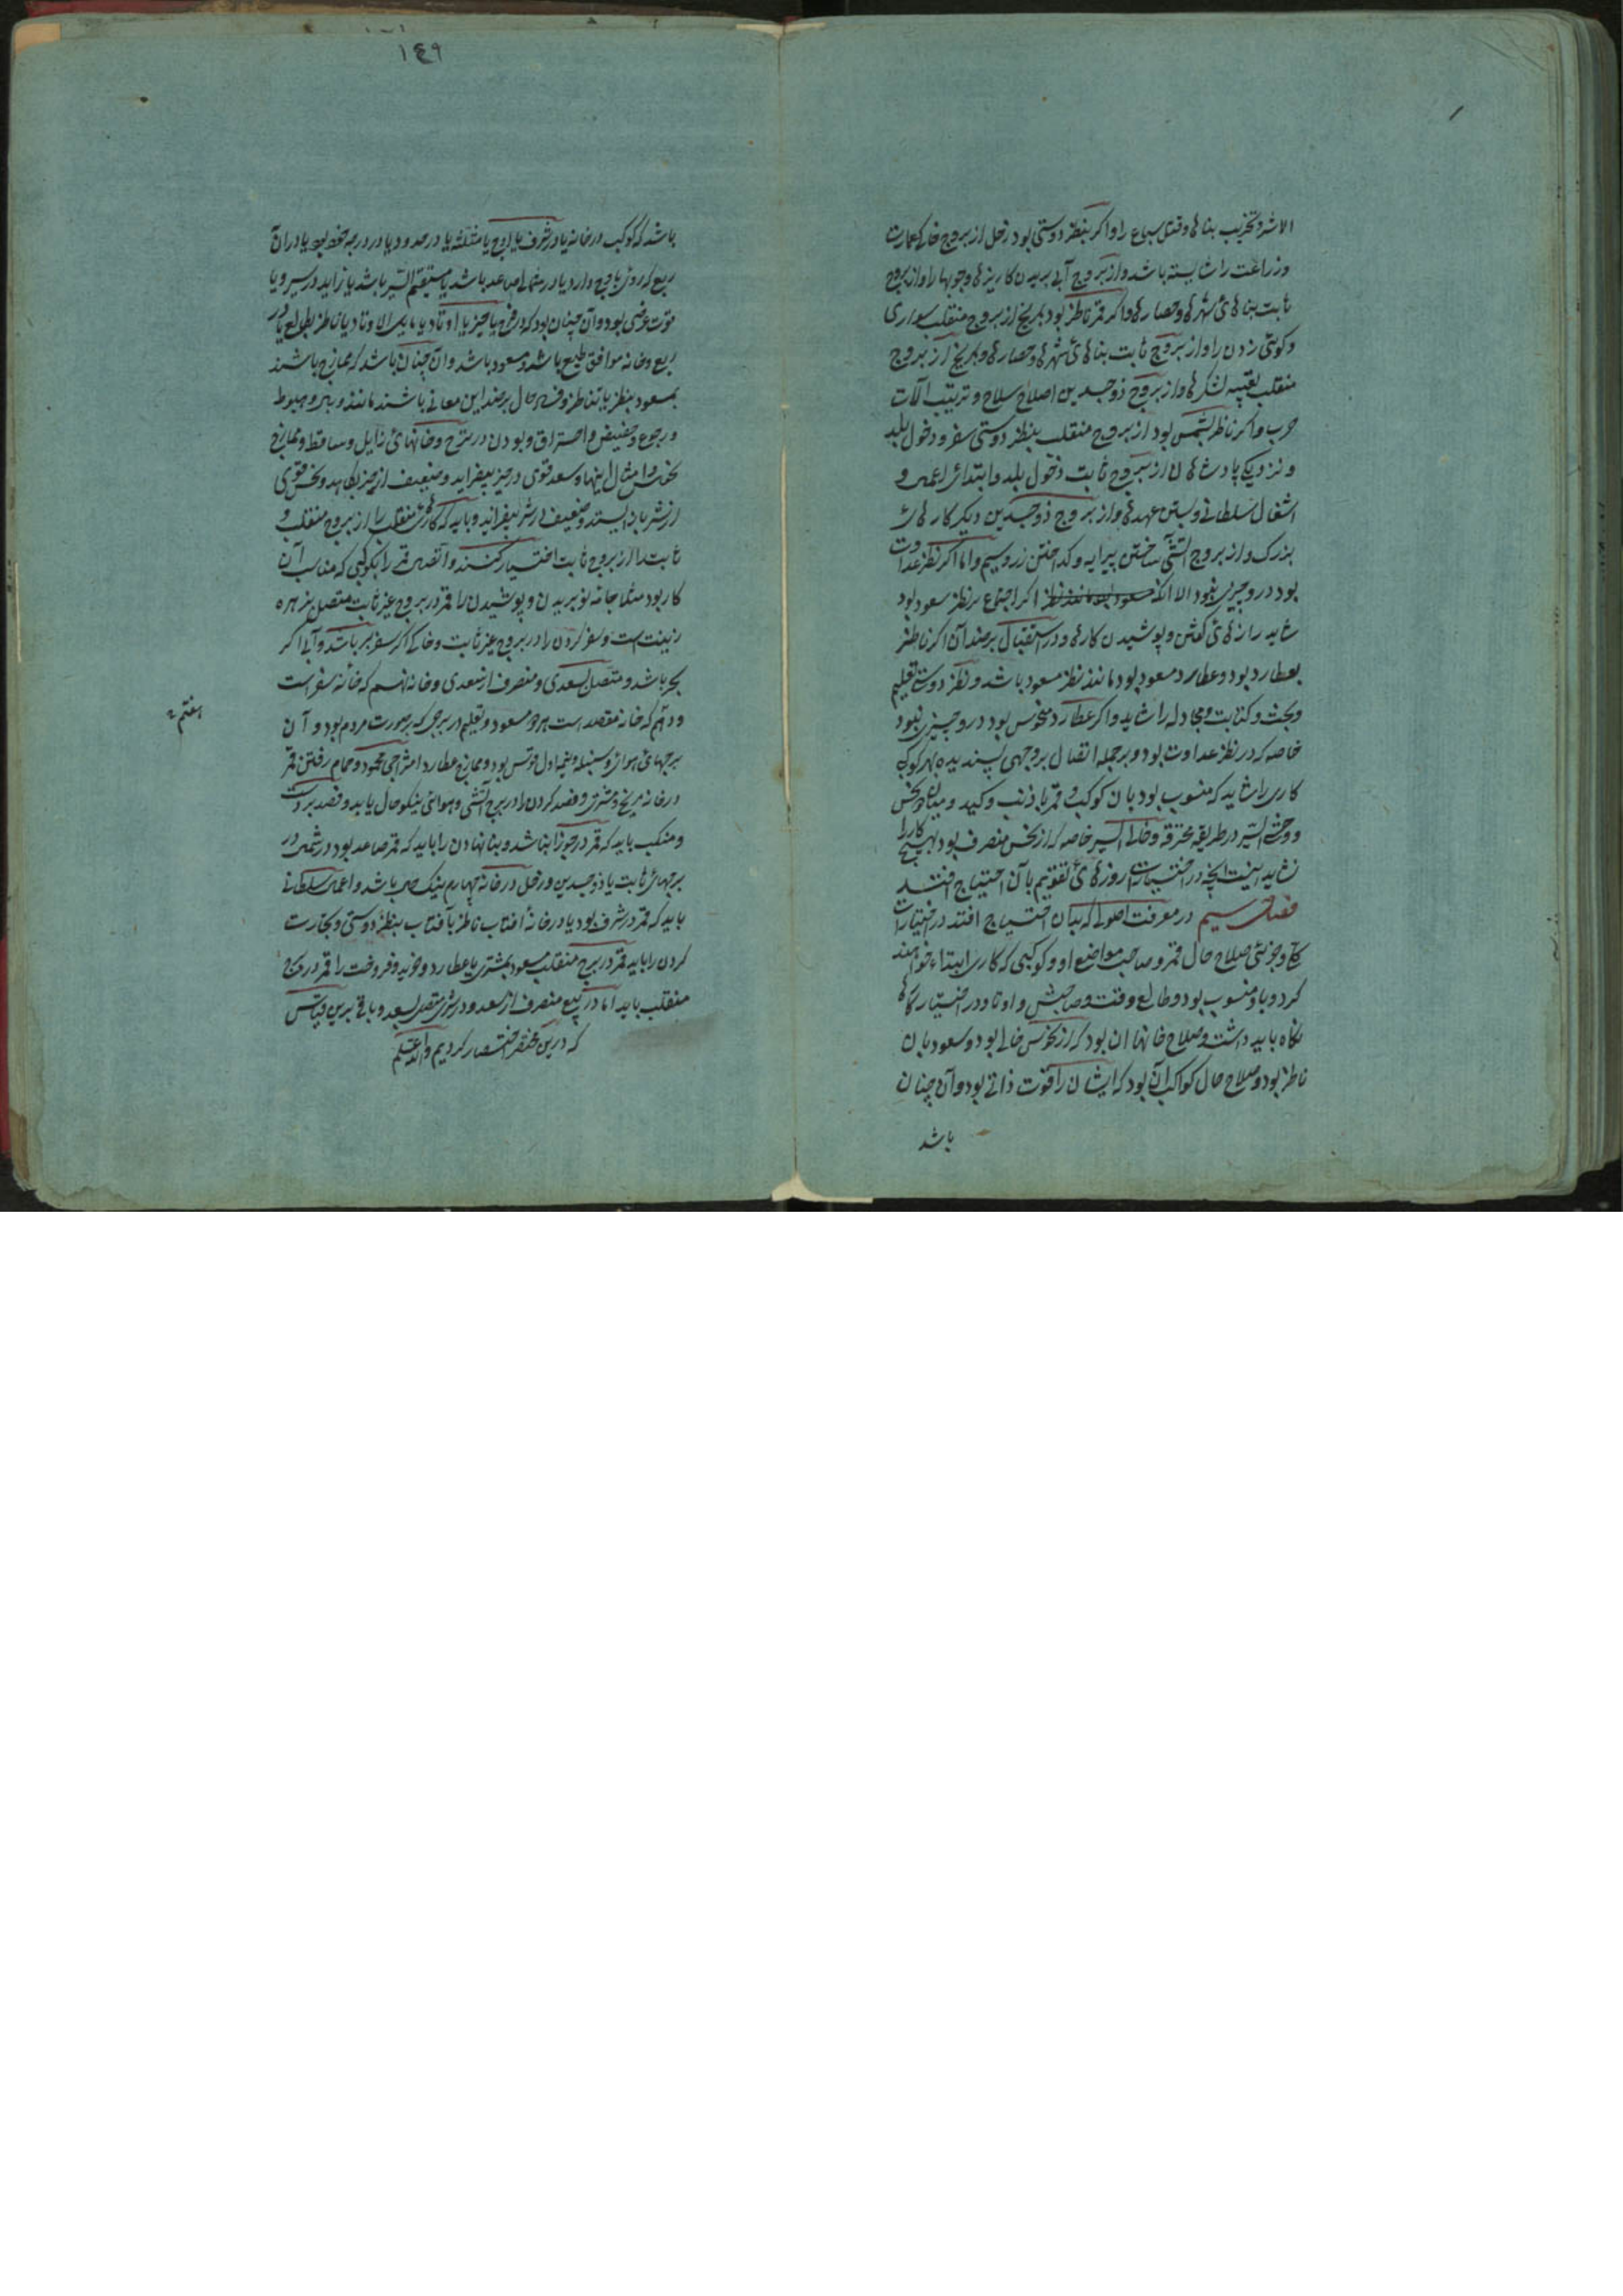 الاشر و تخریب بناها و قتل سباع را و اگر بنظر دوستی بود زحل از بروج خاکی عمارت
و زراعت را شایسته باشد و از بروج آبی بریدن کاریزها و جویها را و از بروج
ثابت بناهای شهرها و حصارها و اگر قمر ناظر بود بمریخ از بروج منقلب سواری
و کوی زدن را و از بروج ثابت بناهای شهرها و حصارها و بمریخ از بروج
منقلب تعبیه لشکرها و از بروج ذوجسدین اصلاح سلاح و ترتیب آلات
حرب و اگر ناظر بشمس بود از بروج منقلب بنظر دوستی سفر و دخول بلد
و نزدیکی پادشاهان از بروج ثابت دخول بلد و ابتدای اعمال و
اشغال سلطانی و بستن عهدها و از بروج ذوجسدین دیگر کارهای
بزرک و از بروج آتشی ساختن پیرایه و کداختن زر و سیم و اما اگر نظر عداوت
بود درو چیزی نبود الا انکه اگر اجتماع بر نظر سعود بود
شاید رازهای کفتن و پوشیدن کارها و در استقبال بر ضد آن اگر ناظر
بعطارد بود و عطارد مسعود بود مانند نظر مسعود باشد و نظر دوستی تعلیم
و بحث و کتابت و مجادله را شاید و اگر عطارد منحوس بود درو چیزی نبود
خاصه که در نظر عداوت بود و بر جمله اتصال بروجهی پسندیده بهر کوکب
کاری را شاید که منسوب بود بان کوکب و قمر با ذنب و کید و میان دو نحس
و وحشی السیر در طریقه محترقه و خالی السیر خاصه که از نحس منصرف بود بهیچ کار را
نشاید اینست انچه در اختیارات روزهای تقویم بآن احتیاج افتد
فصل سیم در معرفت اصولی که بدان احتیاج افتد در اختیارات
کلی و جزئی صلاح حال قمر و صاحب مواضع او و کوکبی که کاری ابتداء خواهند
کرد و باو منسوب بود و طالع وقت و صاحبش و اوتاد در اختیار کارها
نگاه باید داشت و صلاح خانها ان بود که از نحوس خالی بود و سعود بان
ناظر بود و صلاح حال کواکب آن بود که ایشان را قوت ذاتی بود و آن چنان
باشد
۱۴۹
باشد که کوکب در خانه یا در شرف یا اوج یا مثلثه یا در حدود یا در درجه یا در آن
ربع که روی باوج دارد یا در شمالی صاعد باشد یا مستقیم السیر باشد یا زاید در سیر و یا
قوت عرضی بود و آن چنان بود که در فرح یا حیز یا اوتاد یا مایل الاوتاد یا ناظر بطالع یا در
ربع و خانه موافق طبع باشد و مسعود باشد و آن چنان باشد که ممازج باشند
بمسعود بنظر یا تناظر و فساد حال بر ضد این معانی باشند مانند وبال و هبوط
و رجوع و حضیض و احتراق و بودن در ترح و خانهای زایل و ساقط و ممازج
نحوس و امثال اینها و سعد قوی در خیر بیفزاید و ضعیف از خیر بکاهد و نحس قوی
از شر باز ایستد و ضعیف در شر بیفزاید و باید که کارهای منقلب را از بروج منقلب و
ثابت را از بروج ثابت اختیار کنند و اتصال قمر را بکوکبی که مناسب آن
کار بود مثلا جامه نو بریدن و پوشیدن را قمر در بروج غیر ثابت متصل بزهره
زینت است و سفر کردن را در بروج غیر ثابت و خاکی اگر سفر بر باشد و آبی اگر
بحر باشد و متصل بسعدی و منصرف از سعدی و خانه نهم که خانه سفر است
و دهم که خانه مقصد است هر دو مسعود و تعلیم در برجی که بصورت مردم بود و آن
برجهای هوائی و سنبله و نیمه اول قوس بود و ممازج عطارد امتزاجی محمود و حمام رفتن قمر
در خانه مریخ و مشتری و فصد کردن را در برج آتشی و هوائی نیکو حال باید و فصد بر دست
و منکب باید که قمر در جوزا نباشد و بنا نهادن را باید که قمر صاعد بود در شمال و در
برجهای ثابت یا ذوجسدین و زحل در خانه چهارم نیک حال باشد و اعمال سلطانی
باید که قمر در شرف بود یا در خانه آفتاب ناظر بآفتاب بنظر دوستی و تجارت
کردن را باید قمر در برج منقلب مسعود بمشتری یا عطارد و خرید و فروخت را قمر در برج
منقلب باید اما در بیع منصرف از سعد و در شری متصل بسعد و باقی برین قیاس
که درین مختصر اختصار کردیم والله اعلم
هفتم